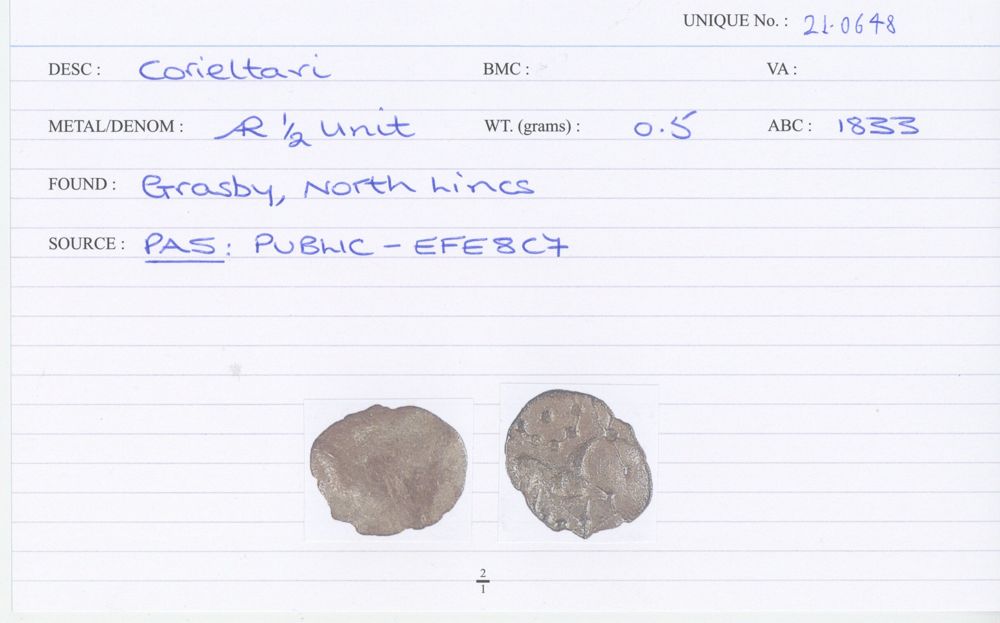 UNIQUE No. : 21-0648
DESC : Corieltavi BMC : VA :
METAL/DENOM : AR 1/2 Unit WT. (grams) : 0.5 ABC : 1833
FOUND : Grasby, North Lincs
SOURCE : PAS: PUBLIC - EFE8C7
2
1